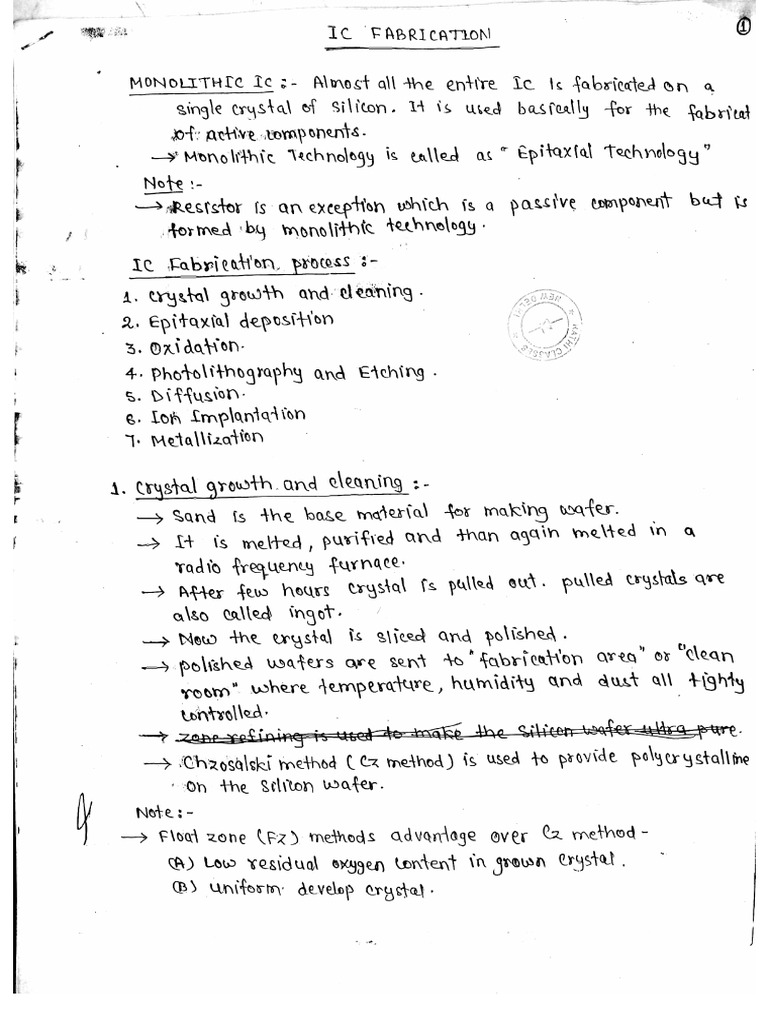 1
IC FABRICATION
MONOLITHIC IC :- Almost all the entire IC Is fabricated on a
single crystal of silicon. It is used basically for the fabricat
of active components.
→ Monolithic Technology is called as "Epitaxial Technology"
Note :-
→ Resistor is an exception which is a passive component but is
formed by monolithic technology.
IC Fabrication process :-
1. Crystal growth and cleaning.
2. Epitaxial deposition
3. Oxidation.
4. Photolithography and Etching.
5. Diffusion.
6. Ion Implantation
7. Metallization
NEW DELHI
HATHI CLASSES
1. Crystal growth and cleaning :-
→ Sand is the base material for making wafer.
→ It is melted, purified and than again melted in a
radio frequency furnace.
→ After few hours crystal is pulled out. pulled crystals are
also called ingot.
→ Now the crystal is sliced and polished.
→ polished wafers are sent to "fabrication area" or "clean
room" where temperature, humidity and dust all tighty
controlled.
→ zone refining is used to make the silicon wafer ultra pure.
→ Chzosalski method (Cz method) is used to provide polycrystalline
on the silicon wafer.
Note :-
→ Float zone (Fz) methods advantage over Cz method -
(A) Low residual oxygen content in grown crystal.
(B) uniform develop crystal.